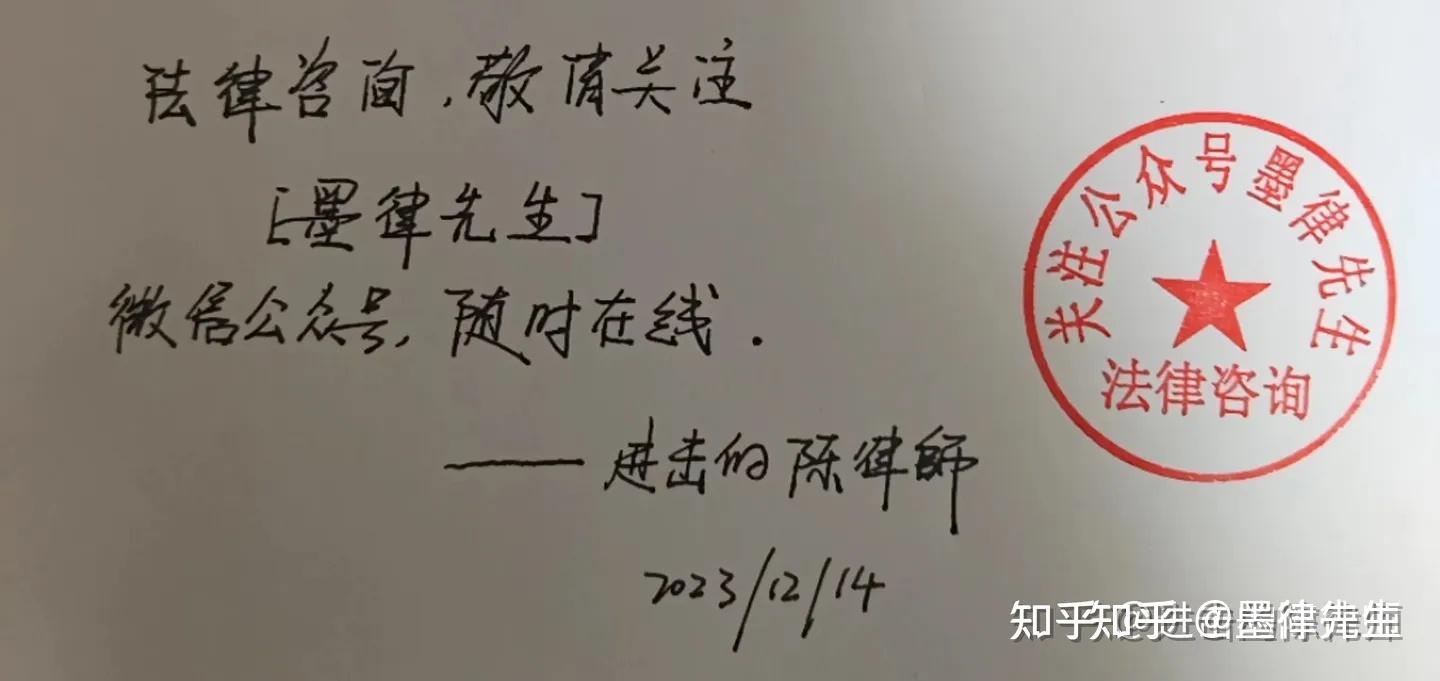 法律咨询，敬请关注
[墨律先生]
微信公众号，随时在线.
——进击的陈律師
2023/12/14
关注公众号墨律先生
法律咨询
知乎 @墨律先生